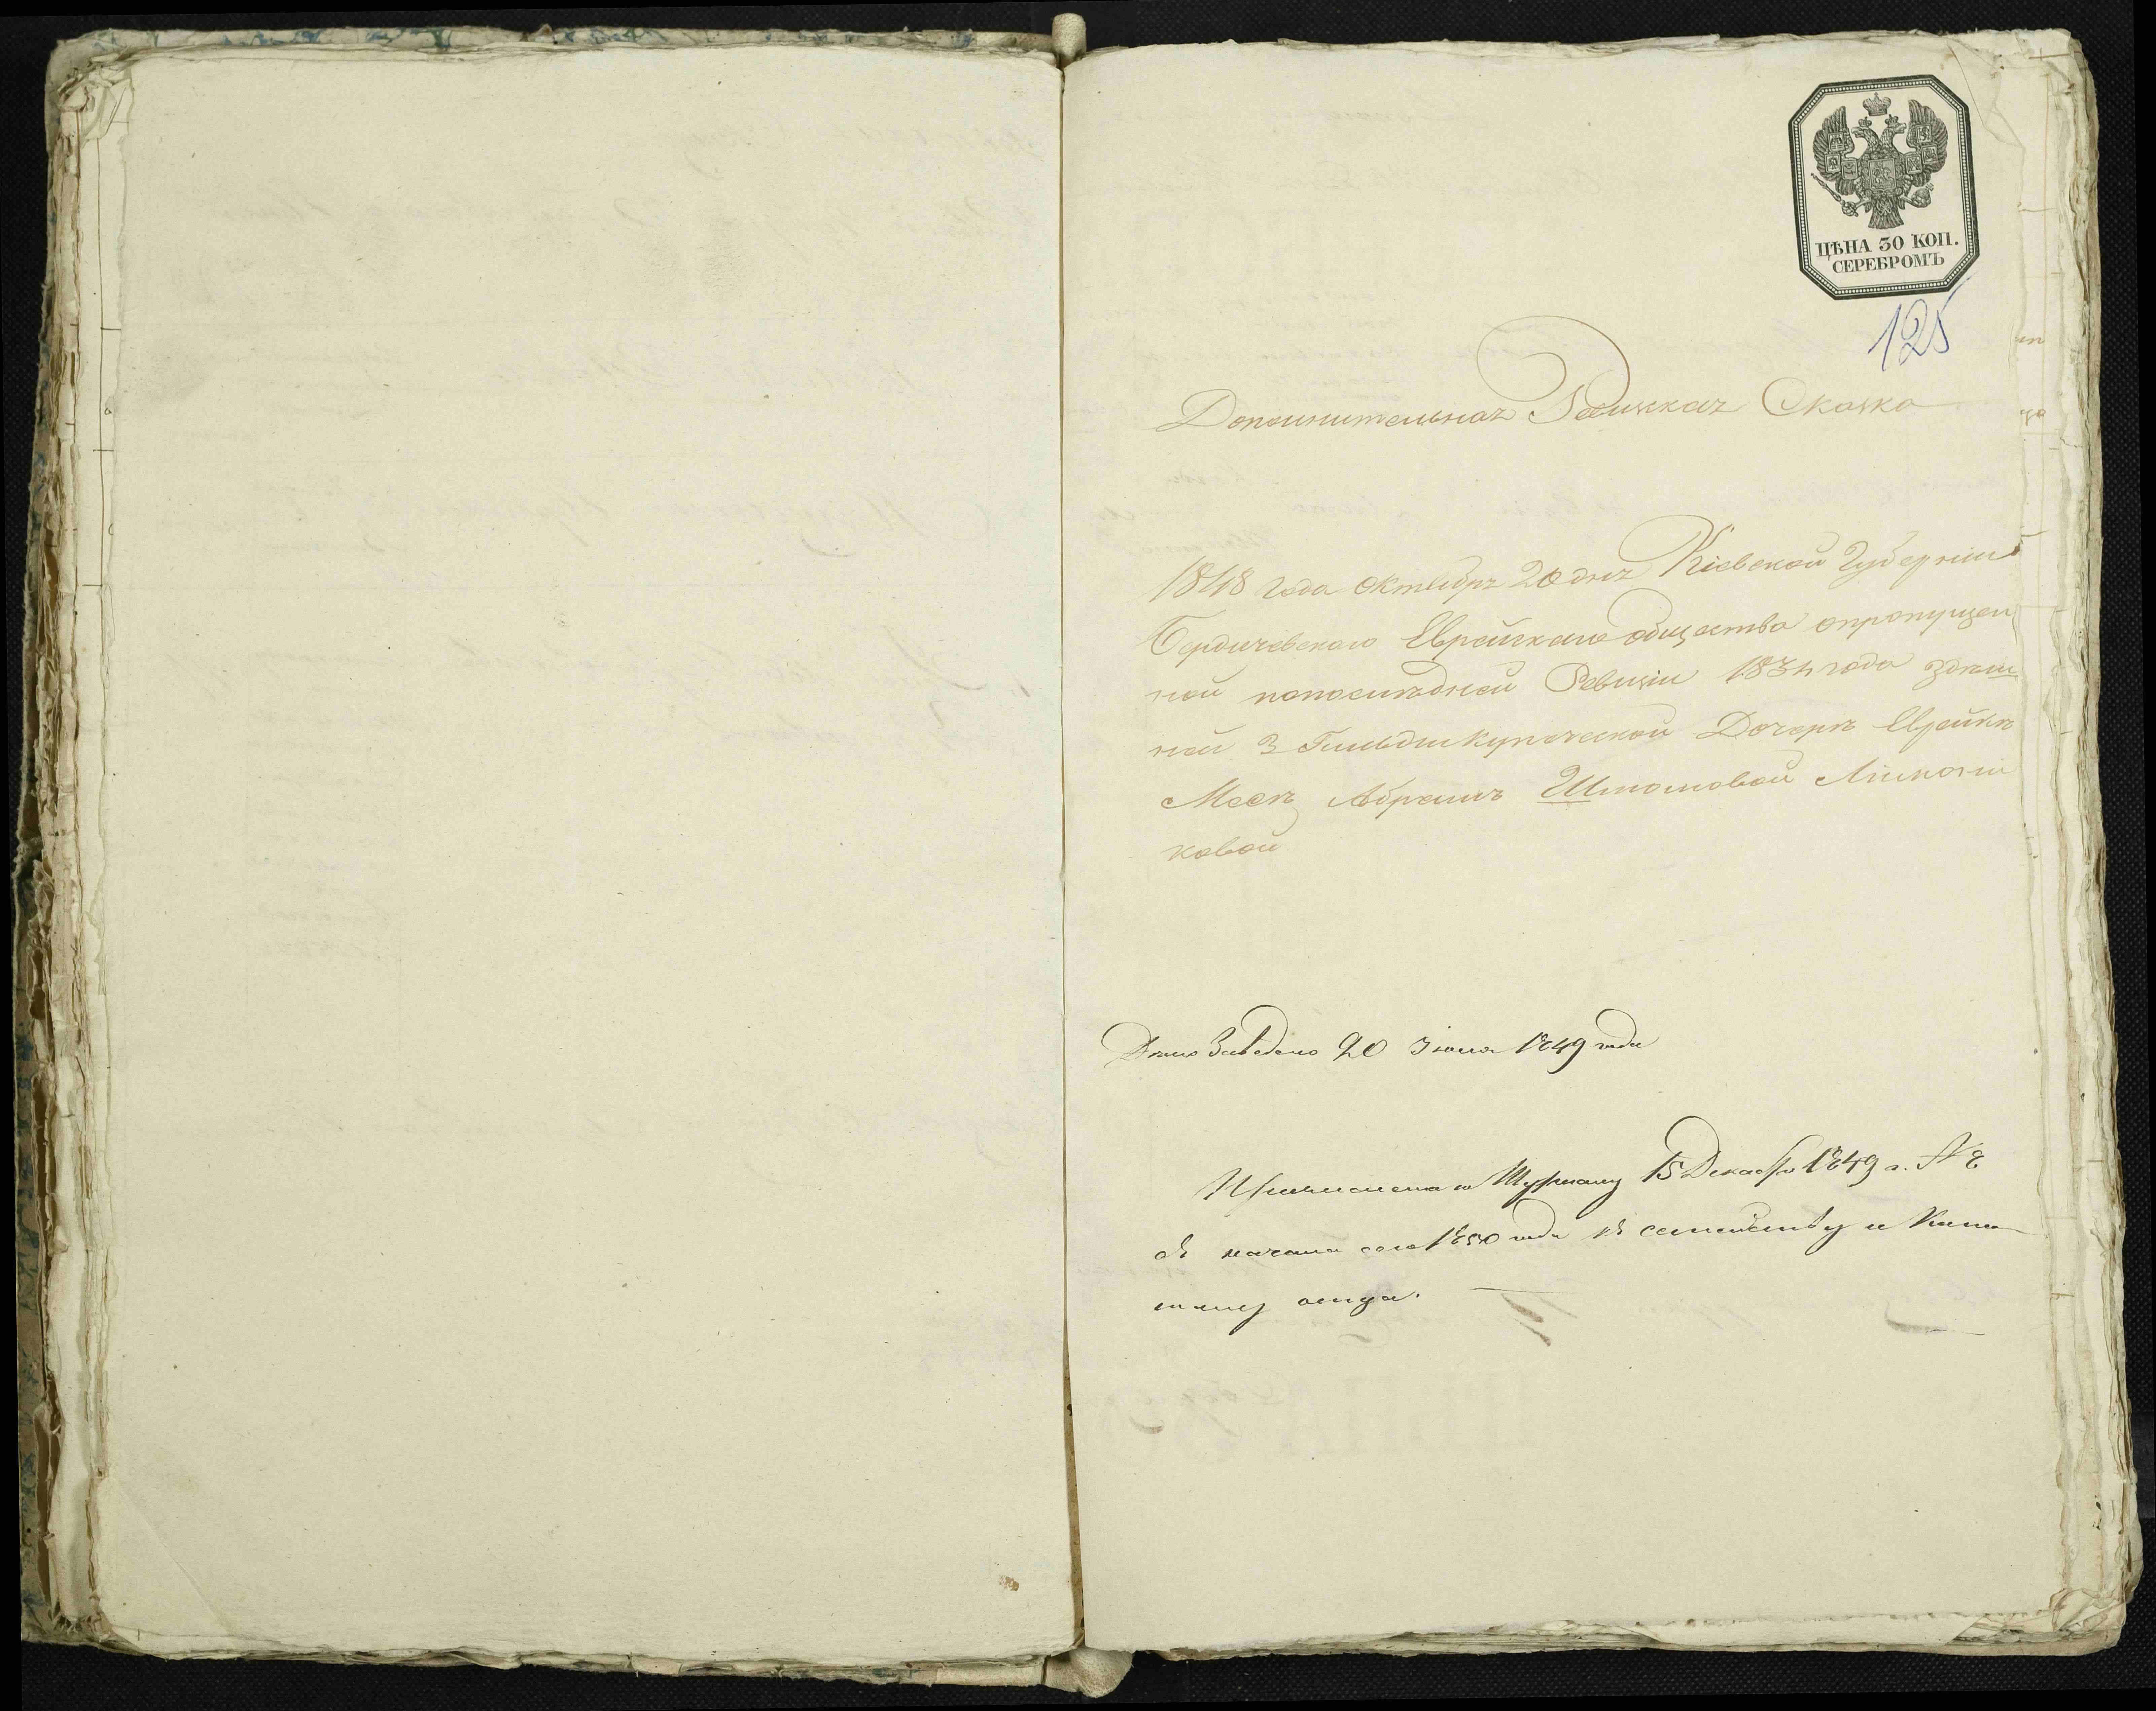 ЦѢНА 30 КОП.
СЕРЕБРОМЪ
125
Дополнительная Ревизкая Сказка
1848 года октября 20 дня Кіевской Губерніи
Бердичевскаго Еврейскаго общества опропущен
ной попослѣдней Ревизіи 1834 года здѣш
ней 3 Гильдіи купеческой Дочерѣ Еврейкѣ
Абрамъ
ковой
Дѣло Заведено 20 Іюня 1849 года
Причислена по Журналу 15 Декабря 1849 г. № 8
съ начала сего 1850 года къ семейству и Капи
талу отца.